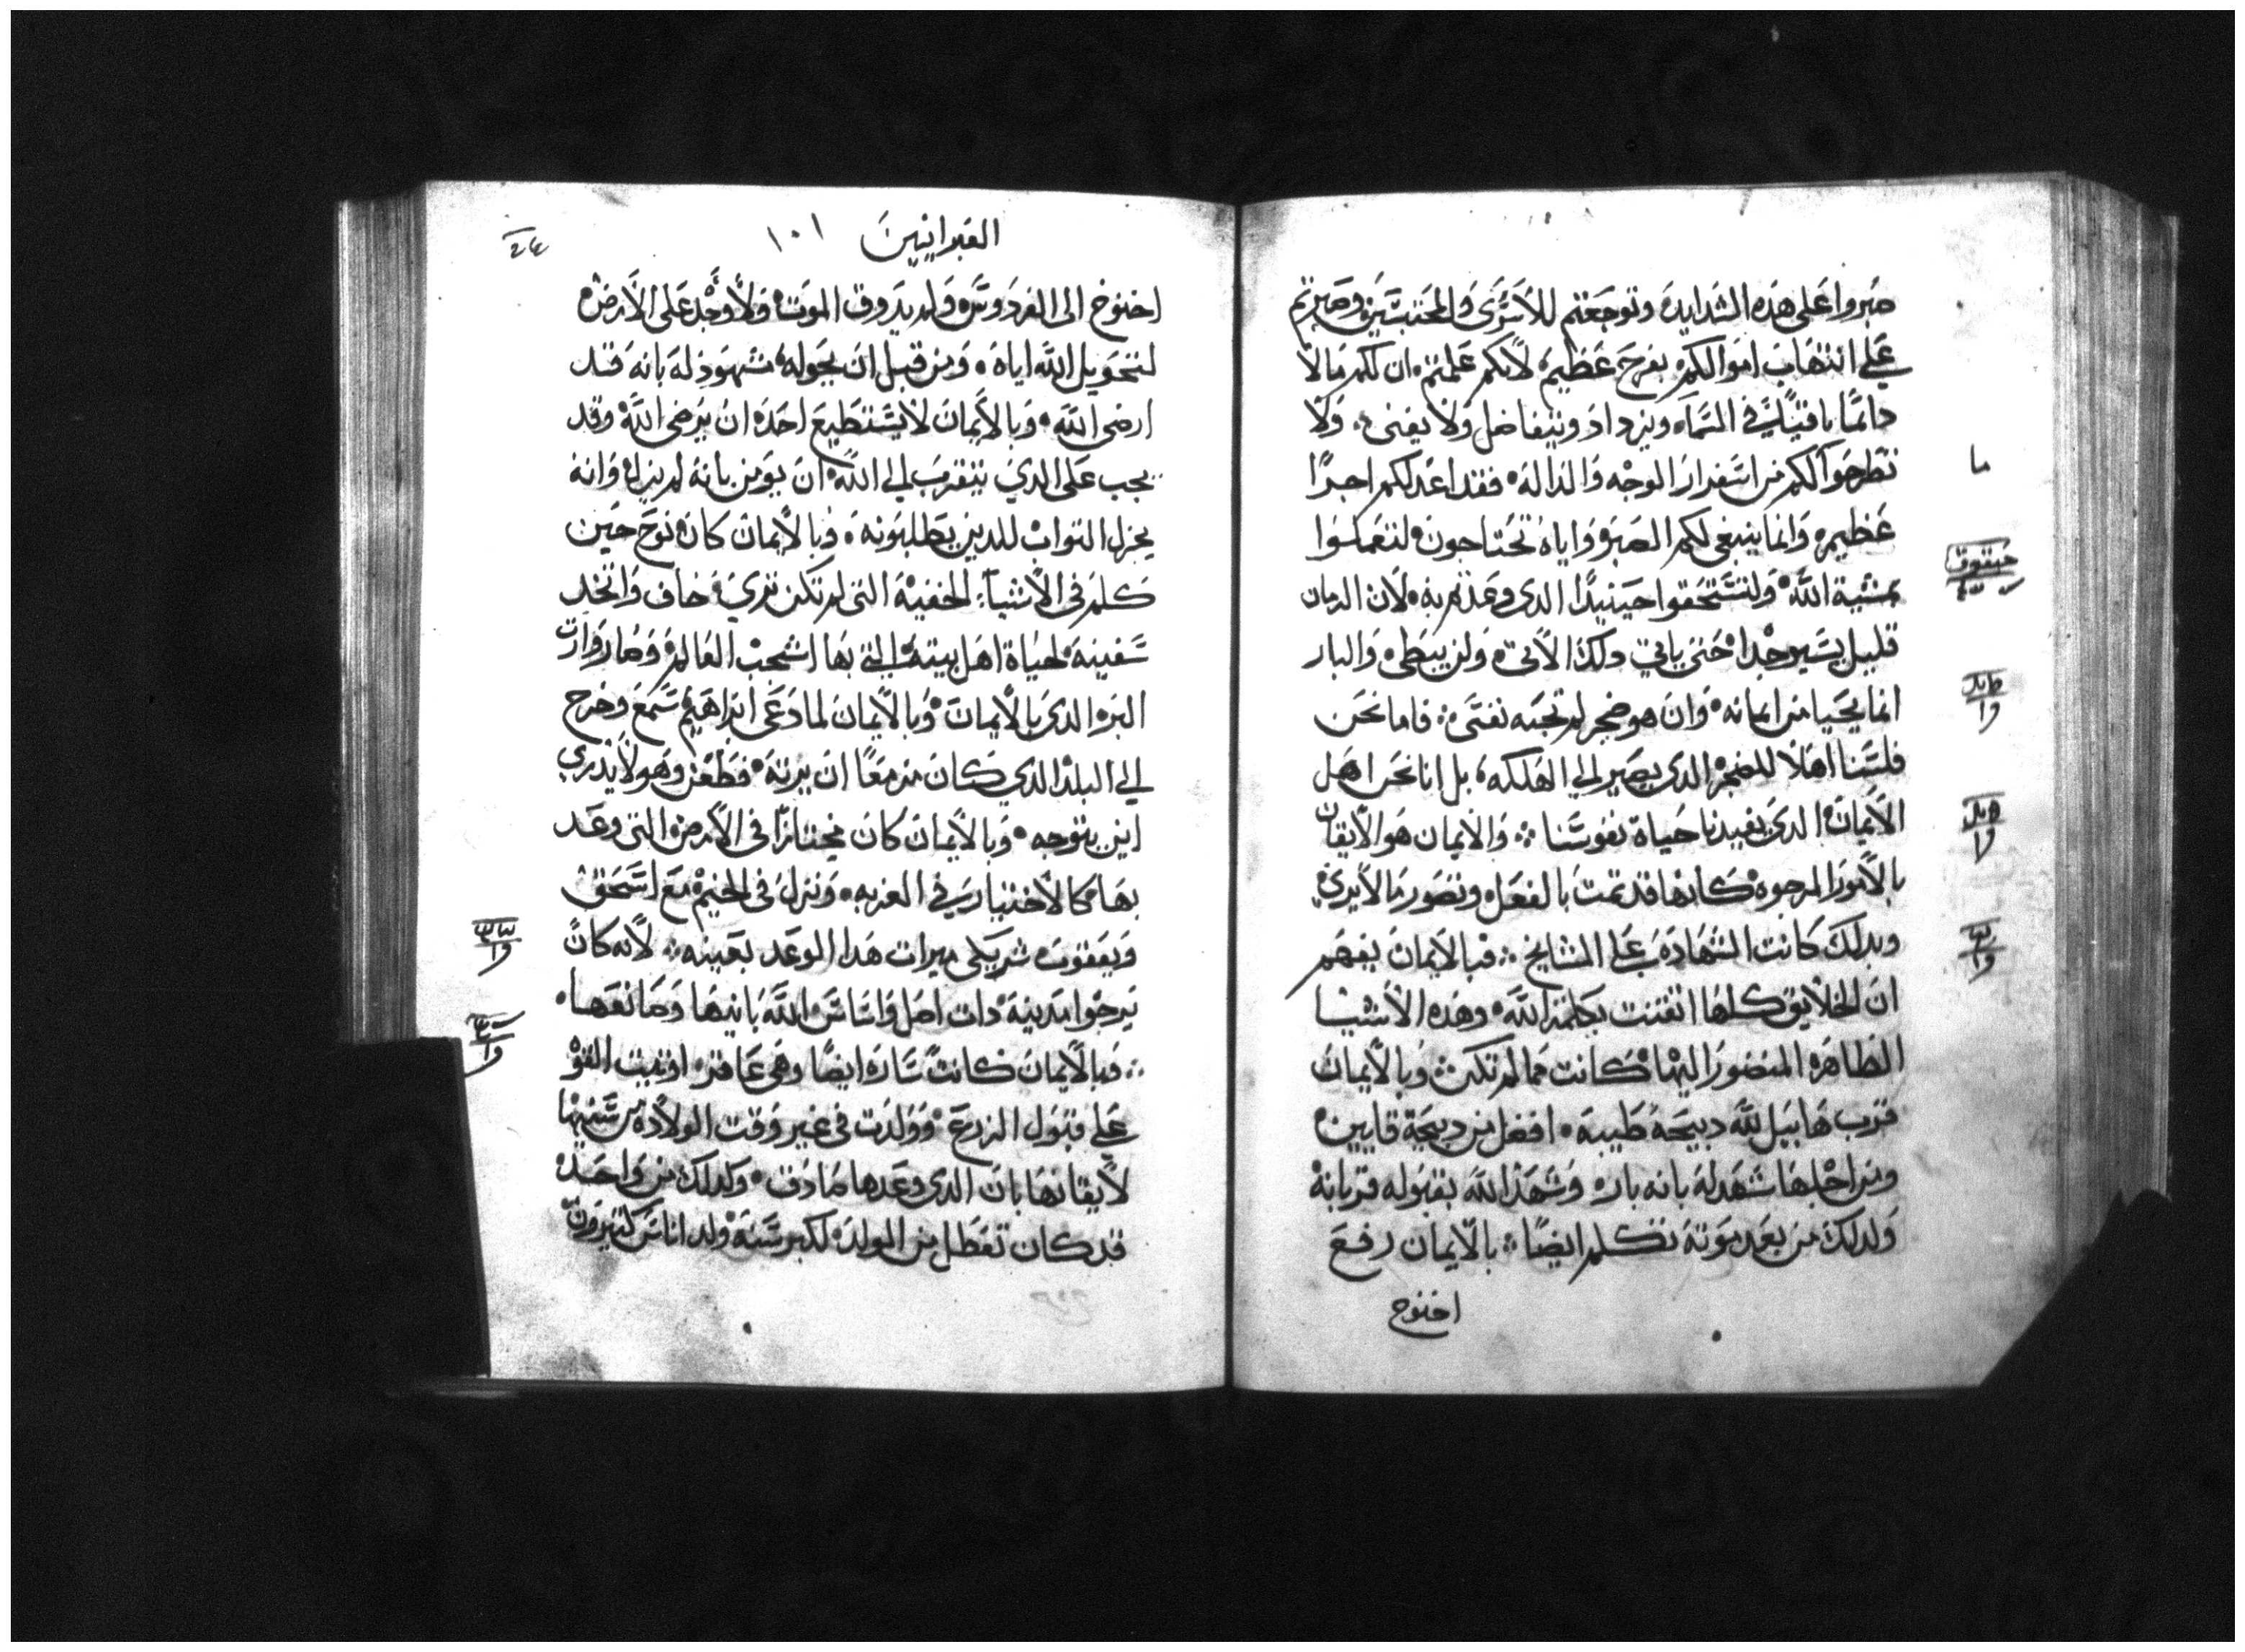 صبروا على هذه الشدايد وتوجعتم للاسرى والمحتبسين وصبرتم
على انتهاب اموالكم بفرح عظيم لانكم علمتم ان لكم مالا
دائما باقيا لكم في السماء ويزداد ويتفاضل ولا يفنى ولا
تطرحوا لكم من اسفرار الوجه والدالة فقد اعد لكم اجرا
عظيم وانما ينبغي لكم الصبر واياه تحتاجون لتعملوا
بمشية الله ولتستحقوا حينيدا الدى وعدتم به لان الزمان
قليل يسير جدا حتى ياتي دلك الاتى ولن يبطى والبار
انما يحيا من ايمانه وان هو ضجر لم تحبه نفسى فاما نحن
فلسنا اهلا للضجر الدى يصير الى الهلكه بل انا نحن اهل
الايمان الدى يفيدنا حياة نفوسنا والايمان هو الايقان
بالامور المرجوه كانها قد تمت بالفعل وتصور ما لا يرى
وبدلك كانت الشهادة على المشايخ فبالايمان يفهم
ان الخلايق كلها اتقنت بكلمة الله وهده الاشيا
الظاهره المنضور اليها كانت مما لم تكن وبالايمان
قرب هابيل لله دبيحة طيبه افضل من دبيحة قايين
ومن اجلها شهد له بانه بار وشهد الله بقبوله قربانه
ولدلك من بعد موته تكلم ايضا بالايمان رفع
اخنوخ
ما
حبقوق
العبرانيين ١٠١
اخنوخ الى الفردوس ولم يدوق الموت ولا وجد على الارض
لتحويل الله اياه ومن قبل ان يحوله شهود له بانه قد
ارضى الله وبالايمان لا يستطيع احد ان يرضى الله وقد
يجب على الدي يتقرب الى الله ان يومن بانه لم يزل وانه
يجزل التواب للدين يطلبونه وبالايمان كان نوح حين
كلم في الاشيا الخفية التى لم تكن ترى خاف واتخد
سفينة لحياة اهل بيته التى بها اشجب العالم وصار وارت
البر الدى بالايمان وبالايمان لما دعى ابراهيم سمع وخرج
الى البلد الدي كان مزمعا ان يرته فظعن وهو لا يدري
اين يتوجه وبالايمان كان مجتازا في الارض التى وعد
بها كالاختيار في الغربه ونزل في الخيم مع اسحق
ويعقوب شريكى ميرات هدا الوعد بعينه لانه كان
يرجوا مدينة دات اصل واساس الله بانيها وصانعها
فبالايمان كانت ساره ايضا وهى عاقر اوتيت القو
على قبول الزرع وولدت في غير وقت الولاده من سنيها
لايقانها بان الدى وعدها صادق وكدلك من واحد
قد كان تعطل من الولد لكبر سنه ولد اناس كثيرون